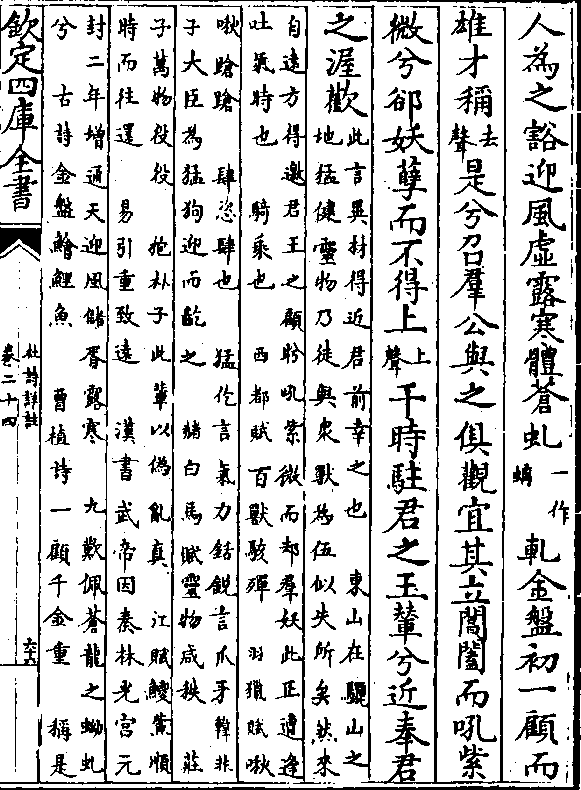 人為之豁迎風虛露寒體蒼虬一作螭軋金盤初一顧而
雄才稱去聲是兮召羣公與之俱觀宜其立閶闔而吼紫
微兮卻妖孽而不得上上聲干時駐君之玉輦兮近奉君
之渥歡此言異封得近君前幸之也 東山在驪山之
地猛健靈物乃徒與衆獸為伍似失所矣然來
自遠方得邀君王之顧盻吼紫微而却羣妖此正遭逢
吐氣時也 騎乘也 西都賦百獸駭殫 羽獵賦啾
啾蹌蹌 肆恣肆也 猛仡言氣力銛鋭言爪牙 韓非
子大臣為猛狗迎而齕之 赭白馬賦靈物咸秩 莊
子萬物役役 抱朴子此輩以偽亂真 江賦鯼鮆順
時而往還 易引重致遠 漢書武帝因秦林光宫元
封二年增通天迎風儲胥露寒 九歎佩蒼龍之蚴虬
兮 古詩金盤鱠鯉魚 曹植詩一顧千金重 稱是
欽定四庫全書
杜詩詳註
卷二十四